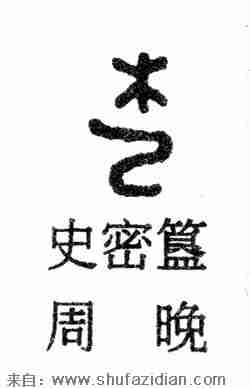 史密簋
周 晚
来自：www.shufazidian.com